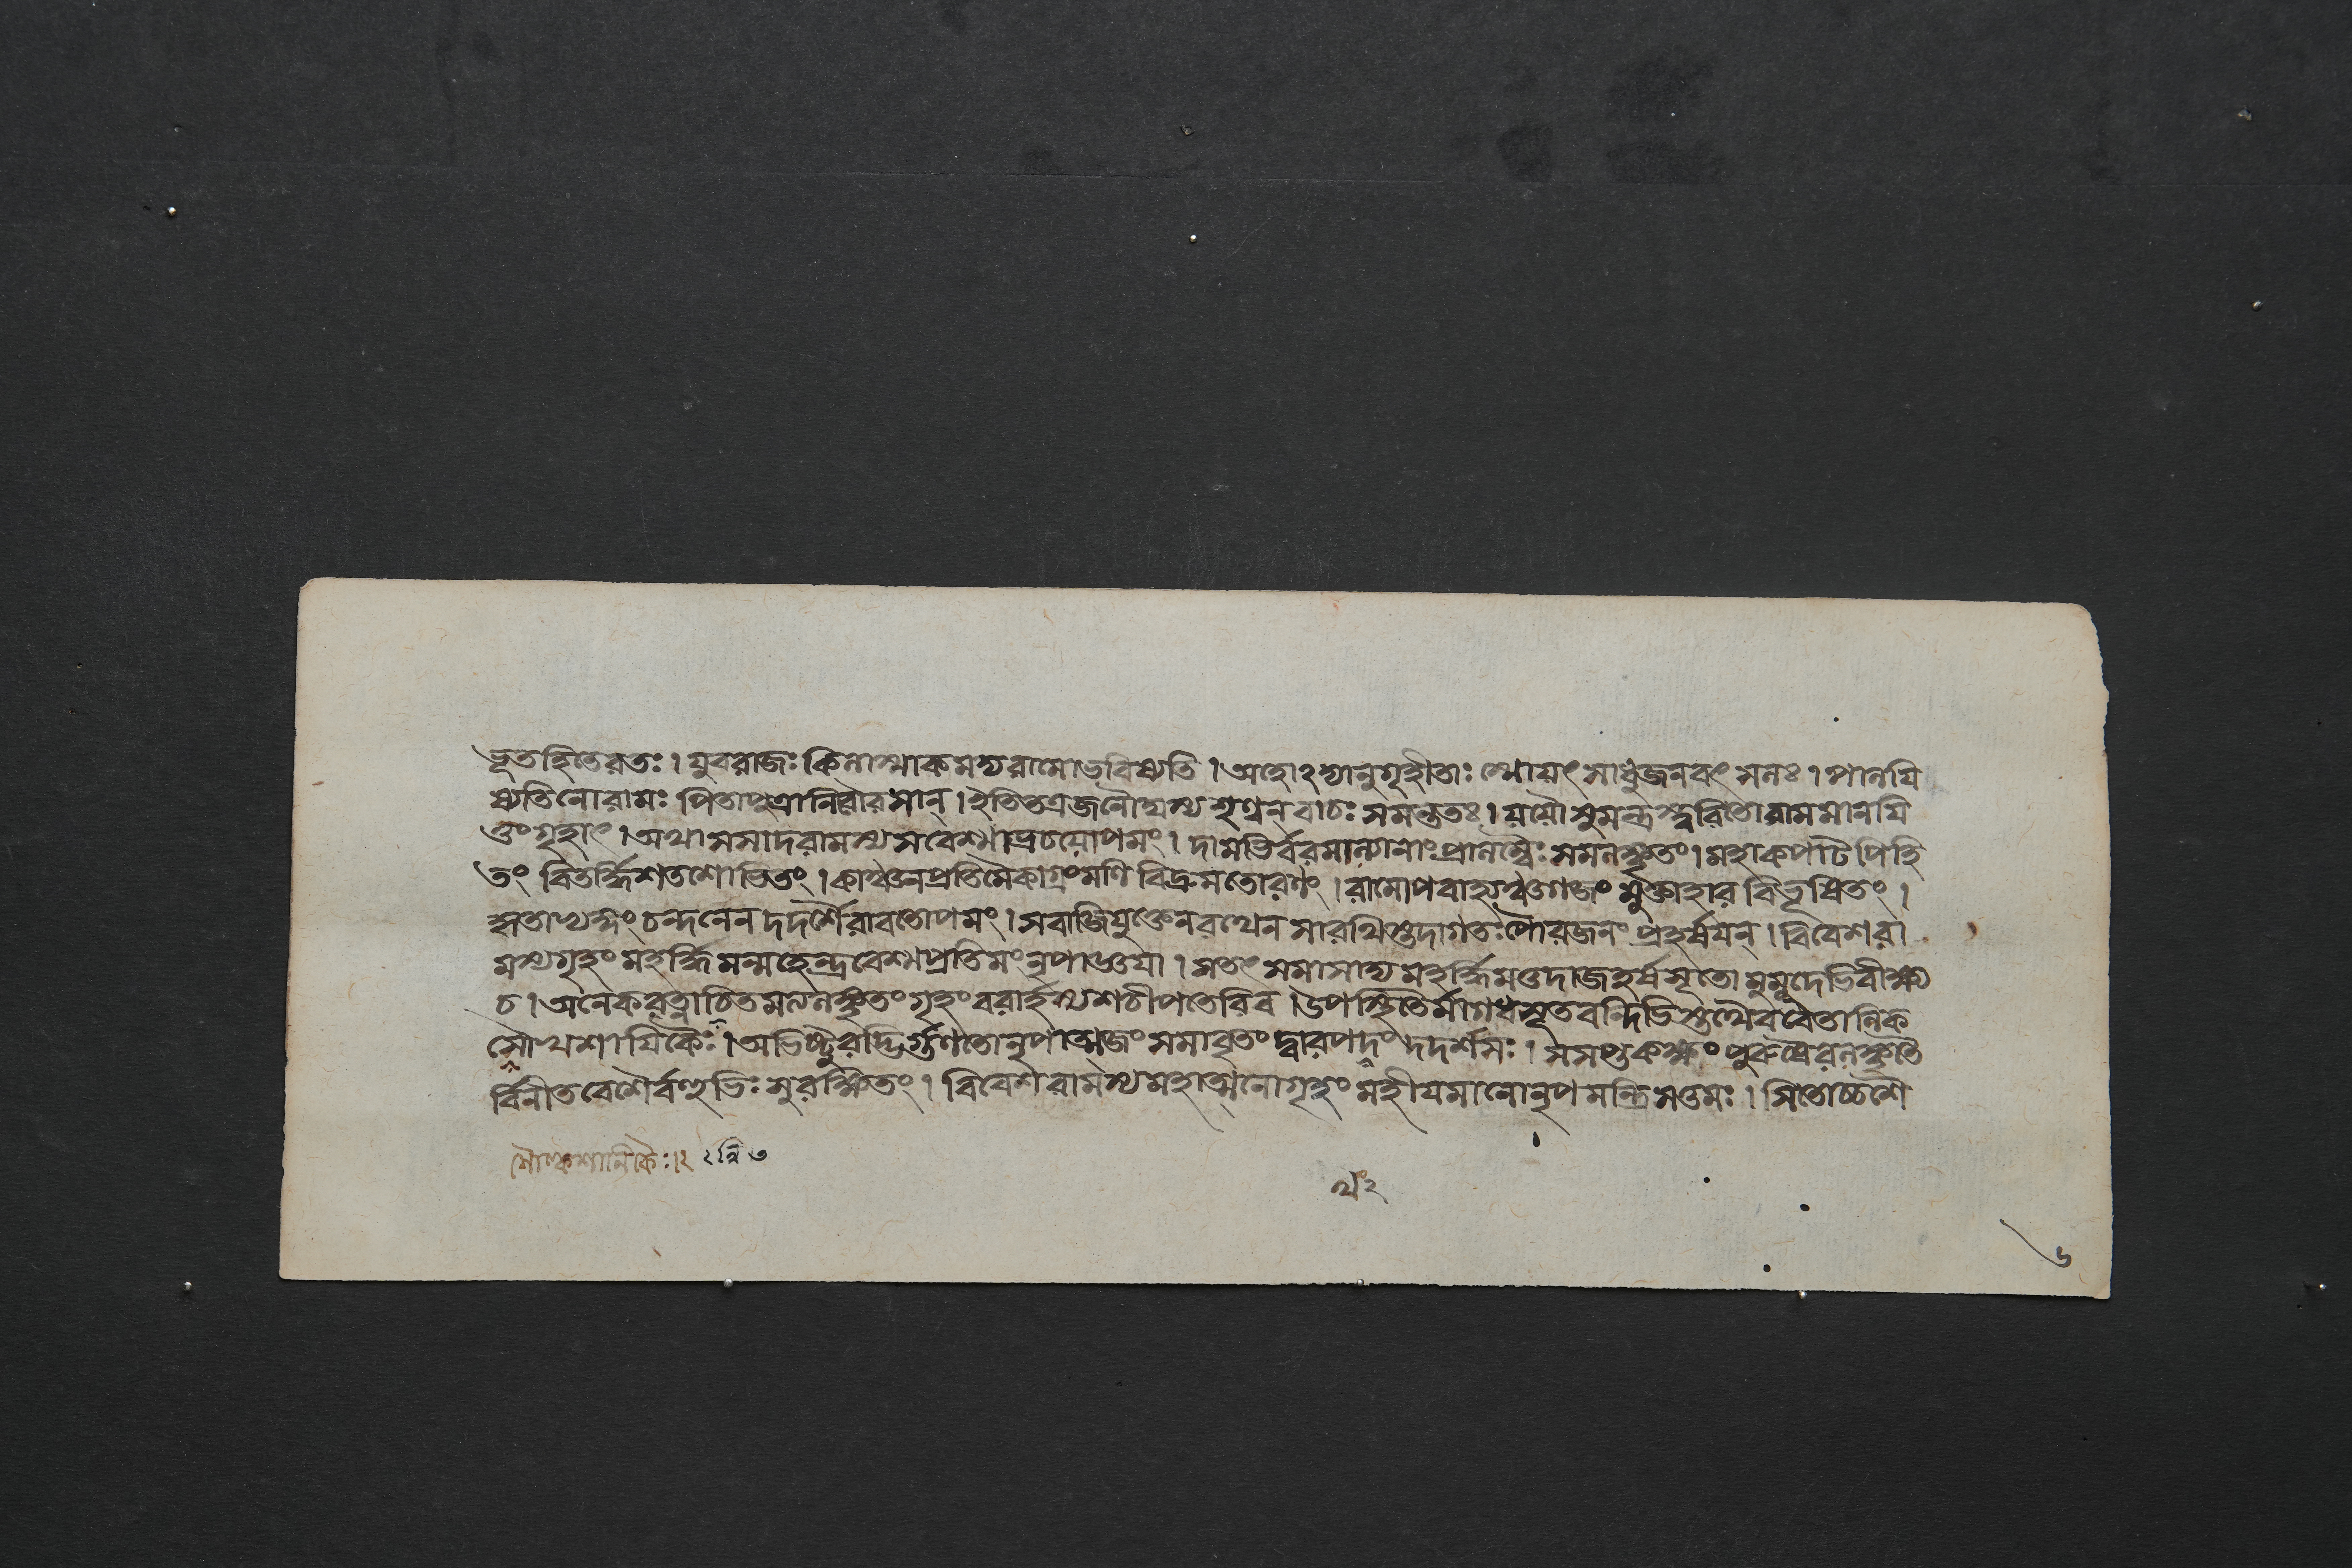 ভূতহিতেরতঃ। যুবরাজঃ কিলাস্মাকমদ্যরামোভবিষ্যতি। অহোঽদ্যানুগৃহীতাঃ স্মোযৎ সাধুজনবৎ সলঃ। পালযি
ষ্যতিনোরামঃ পিতাপুত্রানিবৌরসান্। ইতিতত্রজনৌঘস্য শৃণ্বন্ বাচঃ সমন্ততঃ। যযৌ সুমন্ত্রস্ত্বরিতোরামমানযি
তুংগৃহাৎ। অথাসসাদরামস্য সবেশ্মাভ্রচযোপমং। দামভির্বরমাল্যানাং সমলঙ্কৃতং। মহাকপাটপিহি
তং বিতর্দ্দিশতশোভিতং। কাঞ্চনপ্রতিমৈকাগ্রংমণি বিদ্রুমতোরণং। রামোপবাহ্যঞ্চগজং মুক্তাহার বিভূষিতং।
চন্দনেন দদর্শৈরাবতোপমং। সবাজিযুক্তেনরথেন সারথিস্তদাগতঃ পৌরজনং প্রহর্ষযন্। বিবেশরা
মস্যগৃহং মহর্দ্ধিমন্মহেন্দ্রবেশ্মপ্রতিমং নৃপাজ্ঞযা। সতৎ সমাসাদ্য মহর্দ্ধিমত্তদাজহর্ষসূতো মুমুদেভিবীক্ষ্য
চ। অনেকরত্নাচিতমলঙ্কৃতংগৃহংবরার্হস্যশচীপতেরিব। উপস্থিতৈর্মাগধসূতবন্দিভিস্তথৈববৈতালিক
সৌখশাযিকৈঃ। অভিষ্টুবদ্ভির্গুণতোনৃপাত্মজং সমাবৃতং দ্বারপদং দদর্শসঃ। সসপ্তকক্ষং পুরুষৈরলঙ্কৃতৈ
র্বিনীতবেশৈর্বহুভিঃ সুরক্ষিতং। বিবেশ রামস্যমহাত্মনোগৃহং মহীযমানোনৃপ মন্ত্রিসত্তমঃ। সিতোচ্চশৈ
৬